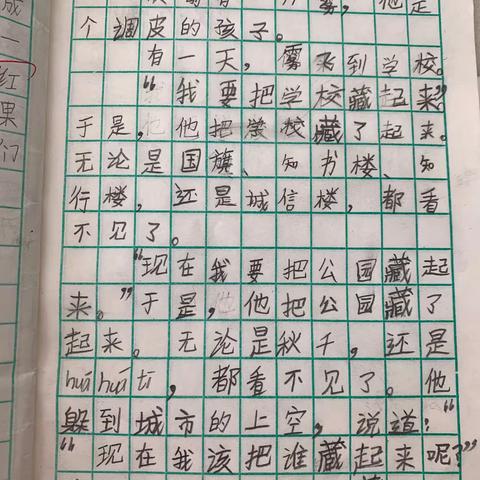 个调皮的孩子。
有一天，雾飞到学校。
“我要把学校藏起来”
于是，他把学校藏了起来。
无论是国旗、知书楼、知
行楼，还是城信楼，都看
不见了。
“现在我要把公园藏起
来。”于是，他把公园藏了
起来。无论是秋千，还是
huá huá tī，都看不见了。他
躲到城市的上空，说道：“
“现在我该把谁藏起来呢？”
成
一
红
果
们